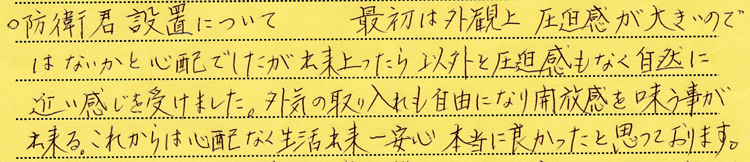 ○防衛君設置について　最初は外観上 圧迫感が大きいので
はないかと心配でしたが出来上ったら以外と圧迫感もなく自然に
近い感じを受けました。外気の取り入れも自由になり開放感を味う事が
出来る。これからは心配なく生活出来一安心 本当に良かったと思っております。